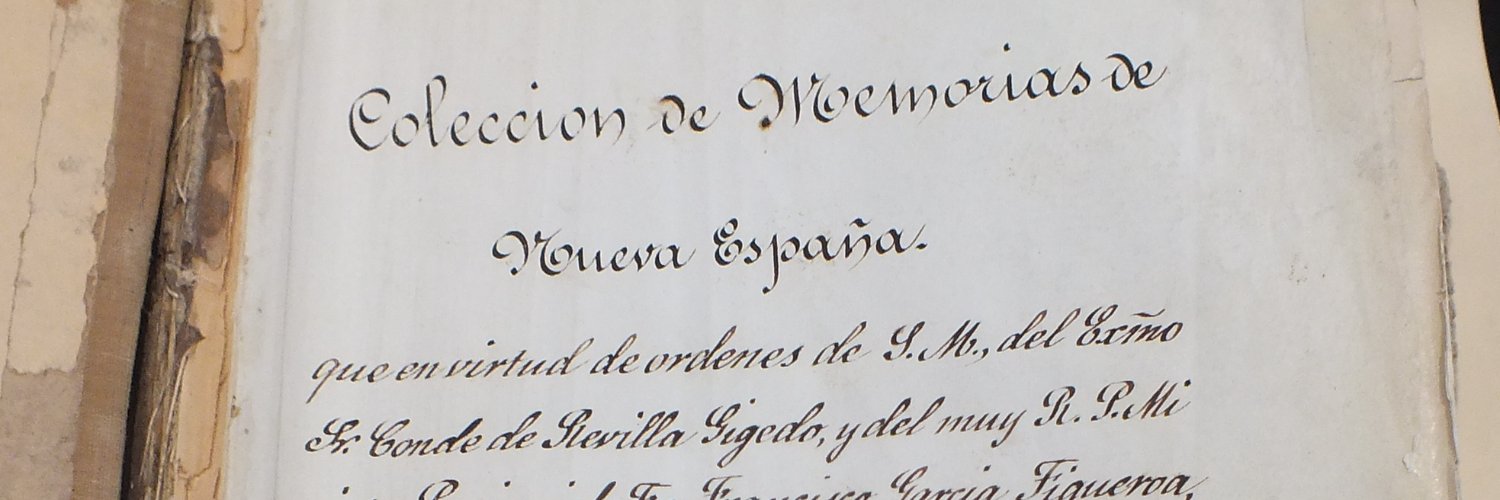 Coleccion de Memorias de
Nueva España.
que en virtud de ordenes de S. M., del Exm̃o
Sr. Conde de Revilla Gigedo, y del muy R. P. Mi
Francisco Garcia Figueroa,